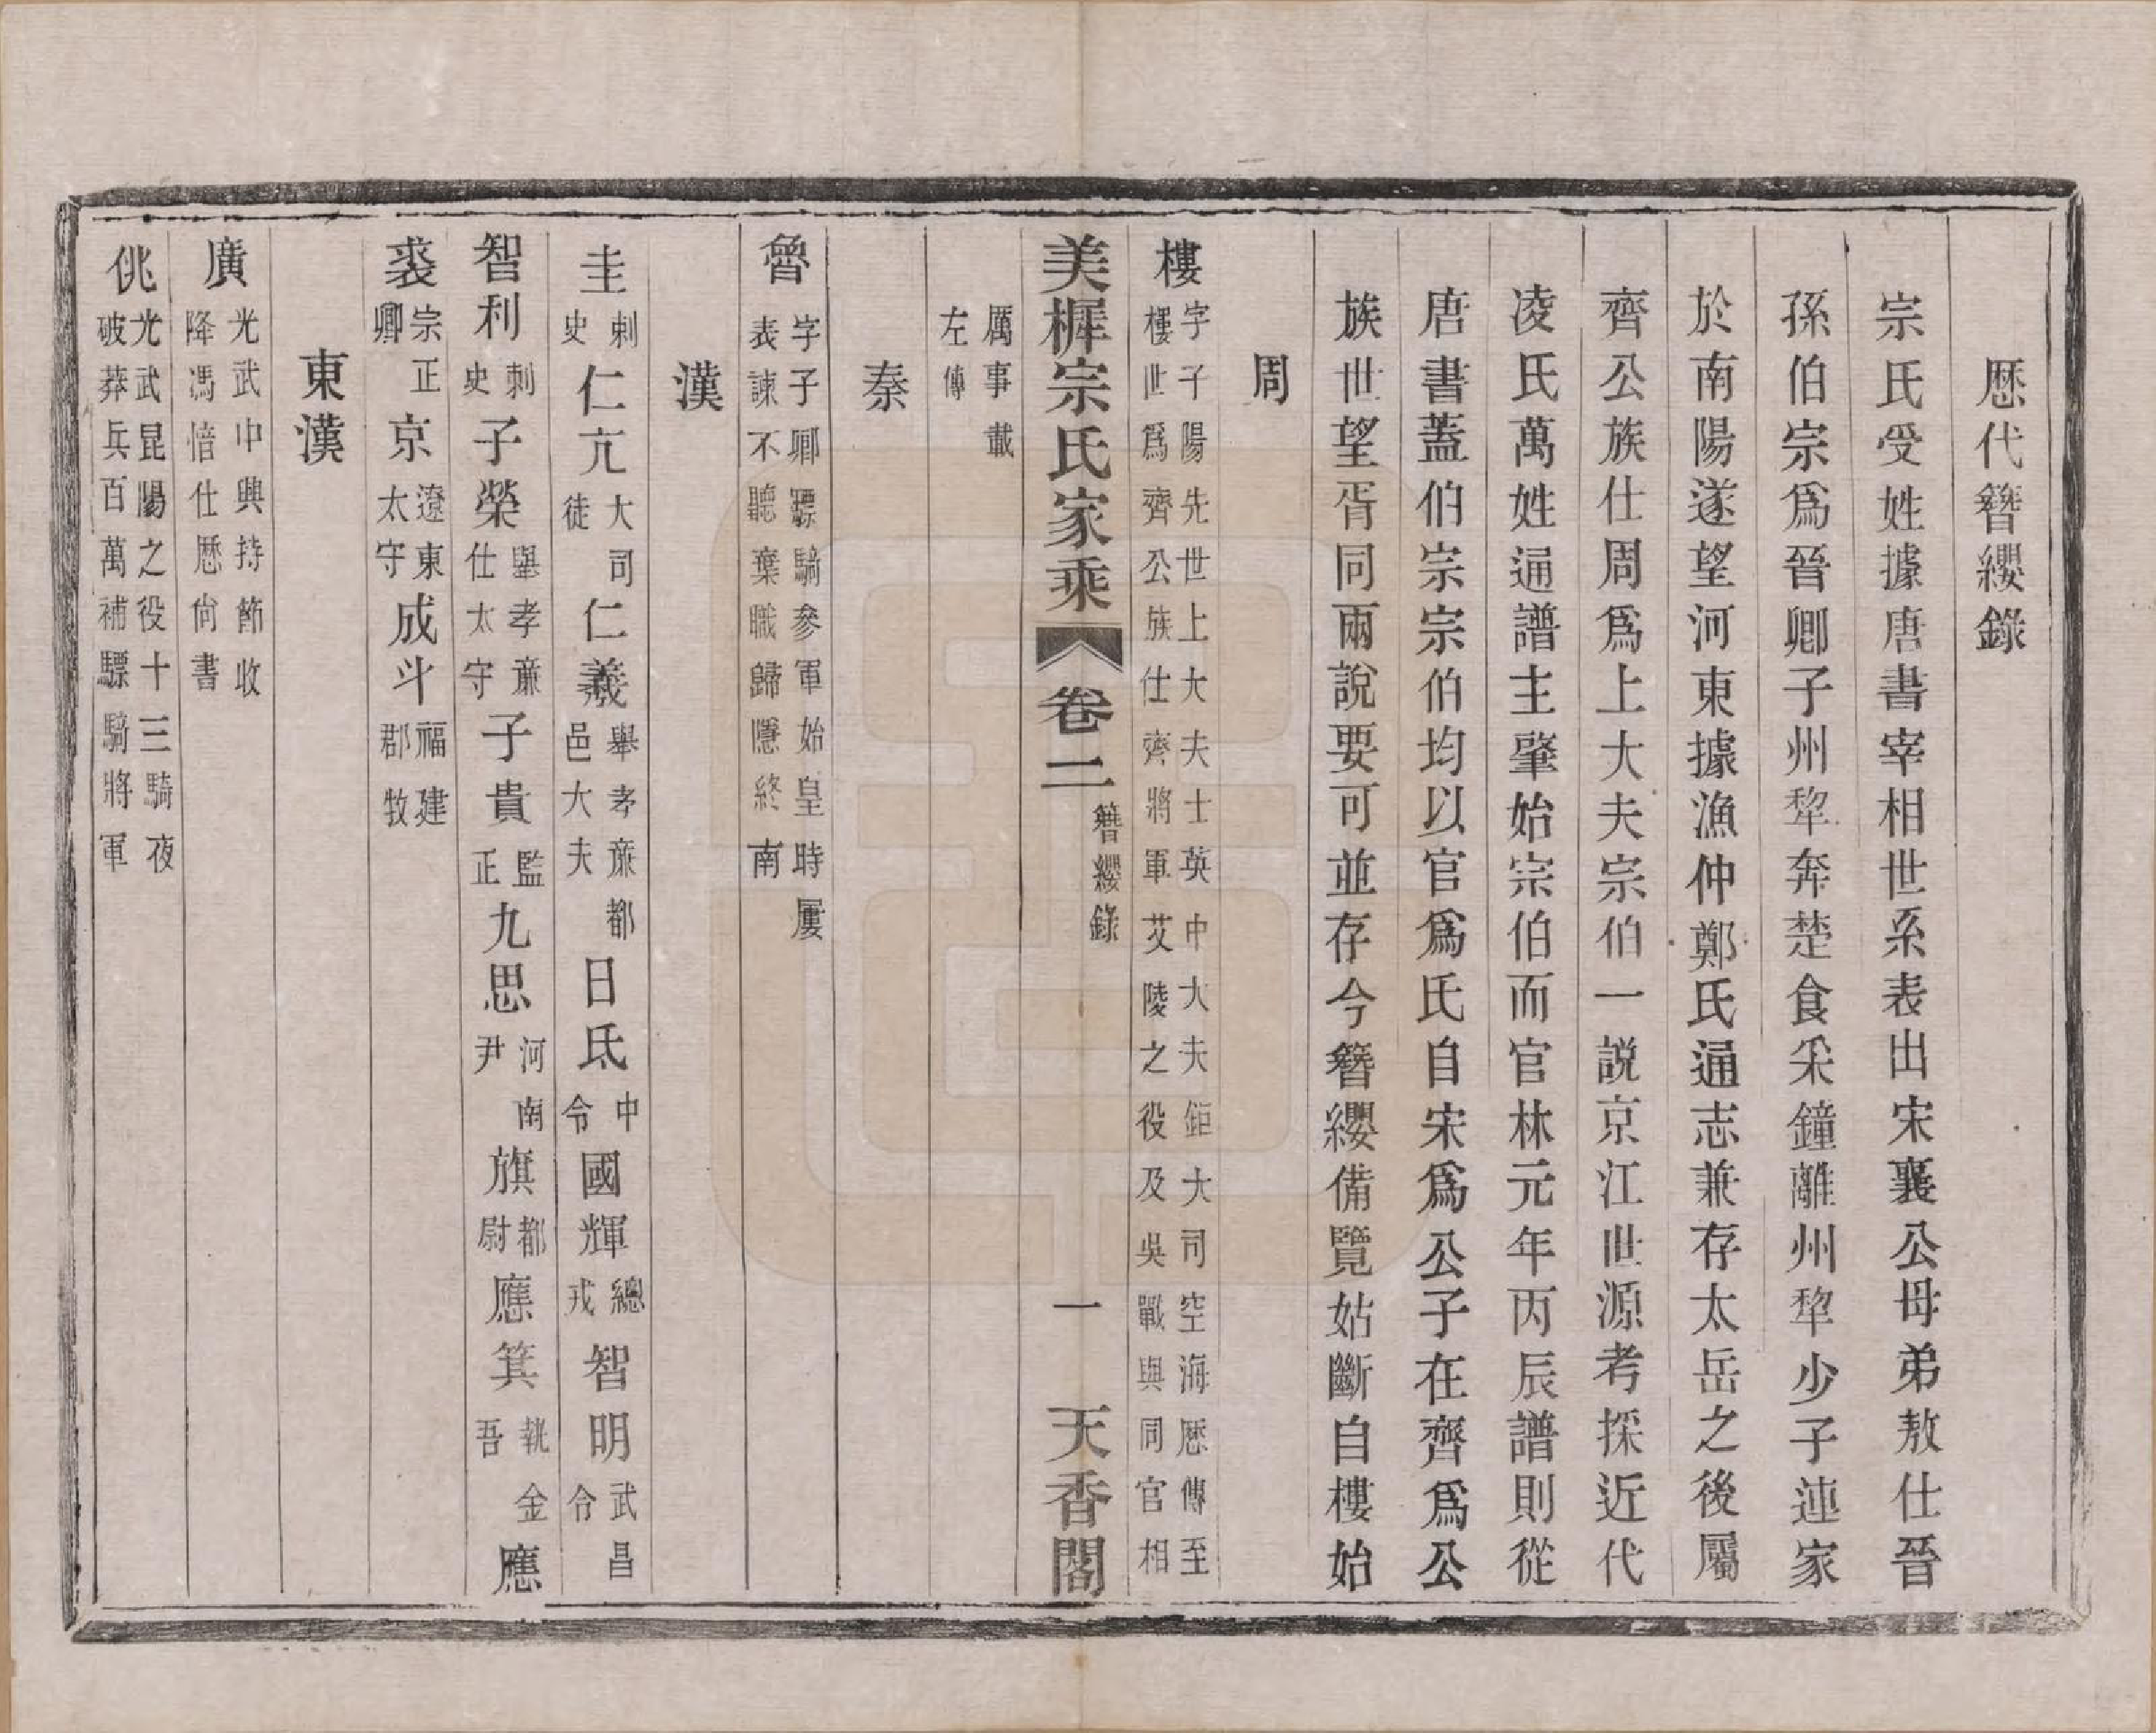 歴代簪纓錄
宗氏受姓據唐書宰相世系表出宋襄公母弟敖仕晉
孫伯宗爲晉卿子州犂奔楚食采鐘離州犂少子連家
於南陽遂望河東據漁仲鄭氏通志兼存太岳之後屬
齊公族仕周爲上大夫宗伯一説京江世源考採近代
凌氏萬姓通譜主肇始宗伯而官林元年丙辰譜則從
唐書蓋伯宗宗伯均以官爲氏自宋爲公子在齊爲公
族世望胥同兩說要可並存今簪纓備覽姑斷自樓始
周
樓字子陽先世上大夫士英中大夫鉅大司空海歴傳至
樓世爲齊公族仕齊將軍艾陵之役及吳戰與同官相
美樨宗氏家乘 卷二 簪纓錄 一 天香閣
厲事載
左傳
秦
魯字子卿驃騎參軍始皇時屢
表諫不聽棄職歸隱終南
漢
圭刺史仁亢大司徒仁羲舉孝亷都邑大夫日氐中令國輝總戎智明武昌令
智利刺史子榮舉孝亷仕太守子貴監正九思河南尹旗都尉應箕執金吾應
裘宗正卿京遼東太守成斗福建郡牧
東漢
廣光武中興持節收
降馮愔仕歴尙書
佻光武昆陽之役十三騎夜
破莽兵百萬補驃騎將軍